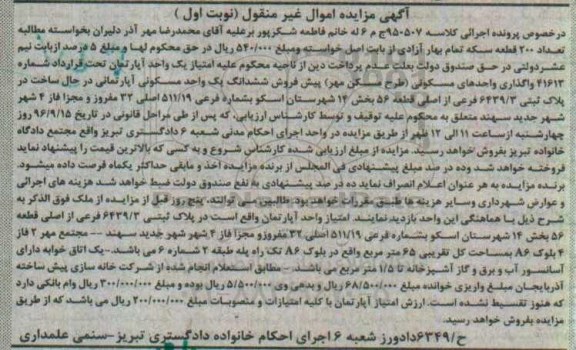 آگهی مزایده اموال غیر منقول (نوبت اول )
درخصوص پرونده اجرائی کلاسه ۹۵۰۵۰۷ج م ۶ له خانم فاطمه شکرپور برعلیه آقای محمدرضا مهر آذر دلیران بخواسته مطالبه
تعداد ۲۰۰ قطعه سکه تمام بهار آزادی از بابت اصل خواسته ومبلغ ۵۴۰/۰۰۰ ریال در حق محکوم لها و مبلغ ۵ درصد ازبابت نیم
عشر دولتی در حق صندوق دولت بعلت عدم پرداخت دین از ناحیه محکوم علیه امتیاز یک واحد آپارتمان تحت قرارداد شماره
۴۱۶۱۳ واگذاری واحدهای مسکونی (طرح مسکن مهر) پیش فروش ششدانگ یک واحد مسکونی آپارتمانی در حال ساخت در
پلاک ثبتی ۶۴۳۹/۳ فرعی از اصلی قطعه ۵۶ بخش ۱۴ شهرستان اسکو بشماره فرعی ۵۱۱/۱۹ اصلی ۳۲ مفروز و مجزا فاز ۴ شهر
شهر جدید سهند متعلق به محکوم علیه توقیف و توسط کارشناس ارزیابی، که پس از طی مراحل قانونی در تاریخ ۹۶/۹/۱۵ روز
چهارشنبه ازساعت ۱۱ الی ۱۲ ظهر از طریق مزایده در واحد اجرای احکام مدنی شعبه ۶ دادگستری تبریز واقع مجتمع دادگاه
خانواده تبریز بفروش خواهد رسید. مزایده از مبلغ ارزیابی شده کارشناس شروع و به کسی که بالاترین قیمت را پیشنهاد نماید
فروخته خواهد شد وده در صد مبلغ پیشنهادی فی المجلس از برنده مزایده اخذ و مابقی حداکثر یکماه فرصت داده میشود.
برنده مزایده به هر عنوان اعلام انصراف نماید ده در صد پیشنهادی به نفع صندوق دولت ضبط خواهد شد هزینه های اجرائی
و عوارض شهرداری وسایر هزینه ها طبق مقررات خواهد بود. طالبین می توانند، پنج روز قبل از مزایده از ملک فوق الذکر به
شرح ذیل با هماهنگی این واحد بازدید نمایند. امتیاز واحد آپارتمان واقع است در پلاک ثبتی ۶۴۳۹/۳ فرعی از اصلی قطعه
۵۶ بخش ۱۴ شهرستان اسکو بشماره فرعی ۵۱۱/۱۹ اصلی ۳۲ مفروزو مجزا فاز ۴ شهر شهر جدید سهند — مجتمع مهر ۲ فاز
۴ بلوک ۸۶ بمساحت کل تقریبی ۶۵ متر مربع واقع در بلوک ۸۶ تک راه پله طبقه ۲ شماره ۶ می باشد.-یک اتاق خوابه دارای
آسانسور آب و برق و گاز آشپزخانه تا ۱/۵ متر مربع می باشد. مطابق استعلام انجام شده از شرکت خانه سازی پیش ساخته
آذربایجان مبلغ واریزی خوانده مبلغ ۶۸/۵۰۰/۰۰۰ ریال و بدهی وی ۵/۵۰۰/۰۰۰ ریال بوده و مبلغ ۳۰۰/۰۰۰/۰۰۰ ریال وام بانکی دارد
که هنوز تقسیط نشده است. ارزش امتیاز آپارتمان با کلیه امتیازات و منصوبات مبلغ ۲۰۰/۰۰۰/۰۰۰ ریال می باشد که از طریق
مزایده بفروش خواهد رسید.
ح/۶۳۴۹دادورز شعبه ۶ اجرای احکام خانواده دادگستری تبریز-سنمی علمداری